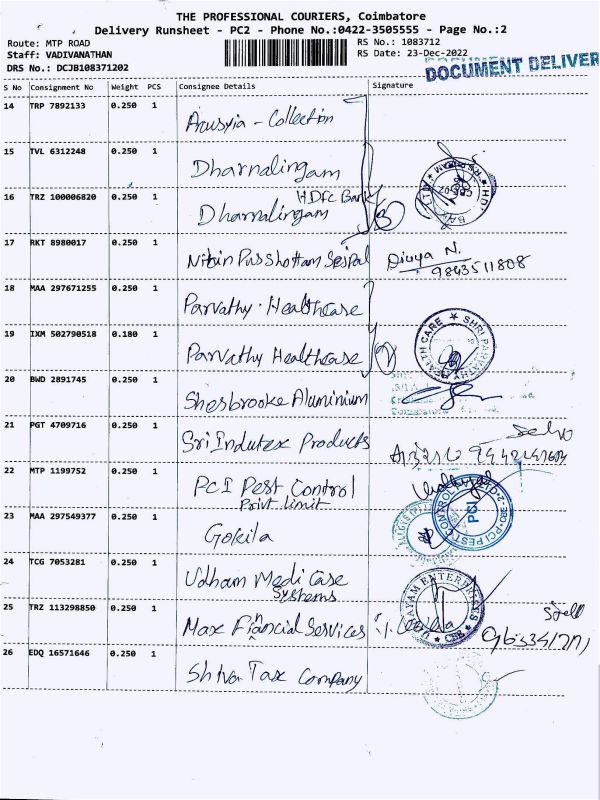 THE PROFESSIONAL COURIERS, Coimbatore
Delivery Runsheet - PC2 - Phone No.:0422-3505555 - Page No.:2
Route: MTP ROAD
Staff: VADIVANATHAN
DRS No.: DCJB108371202
RS No.: 1083712
RS Date: 23-Dec-2022
DOCUMENT DELIVER
S No Consignment No Weight PCS Consignee Details Signature
14 TRP 7892133 0.250 1 Collection
15 TVL 6312248 0.250 1 Dharnalingam
16 TRZ 100006820 0.250 1 Dharnalingam HDFC Bank
17 RKT 8980017 0.250 1 Nitin Divya N.
9843511808
18 MAA 297671255 0.250 1 Parvathy. Healthcare
19 IXM 502790518 0.180 1 Parvathy Healthcare SHRI PARVATHY HEALTH CARE
20 BWD 2891745 0.250 1 Shesbrooke Aluminium
21 PGT 4709716 0.250 1 Sri Indutex Products
22 MTP 1199752 0.250 1 PCI Pest Control
Privt limit PCI PEST CONTROL
PCI
23 MAA 297549377 0.250 1 Gokila
24 TCG 7053281 0.250 1 Udham Medi Case
Systems
25 TRZ 113298850 0.250 1 Max Financial Services UDAYAM ENTERPRISES
CBE
26 EDQ 16571646 0.250 1 Shiva Tax Company